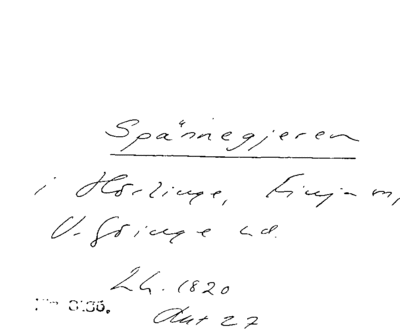 Spännegjeren
i Hörlinge, Finja m,
V. Göinge hd.
Lh. 1820
Aut 27